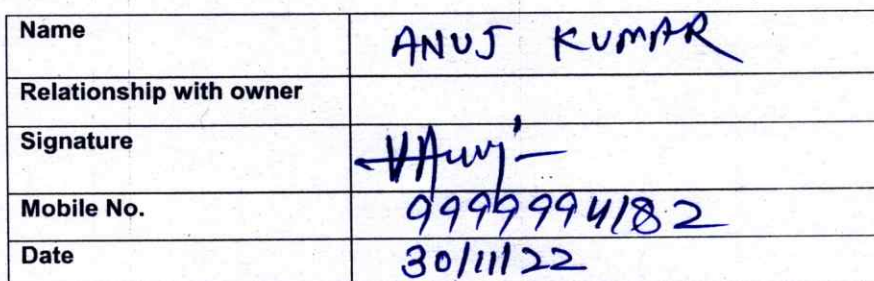 Name ANUJ KUMAR
Relationship with owner
Signature Anuj
Mobile No. 9999994182
Date 30/11/22